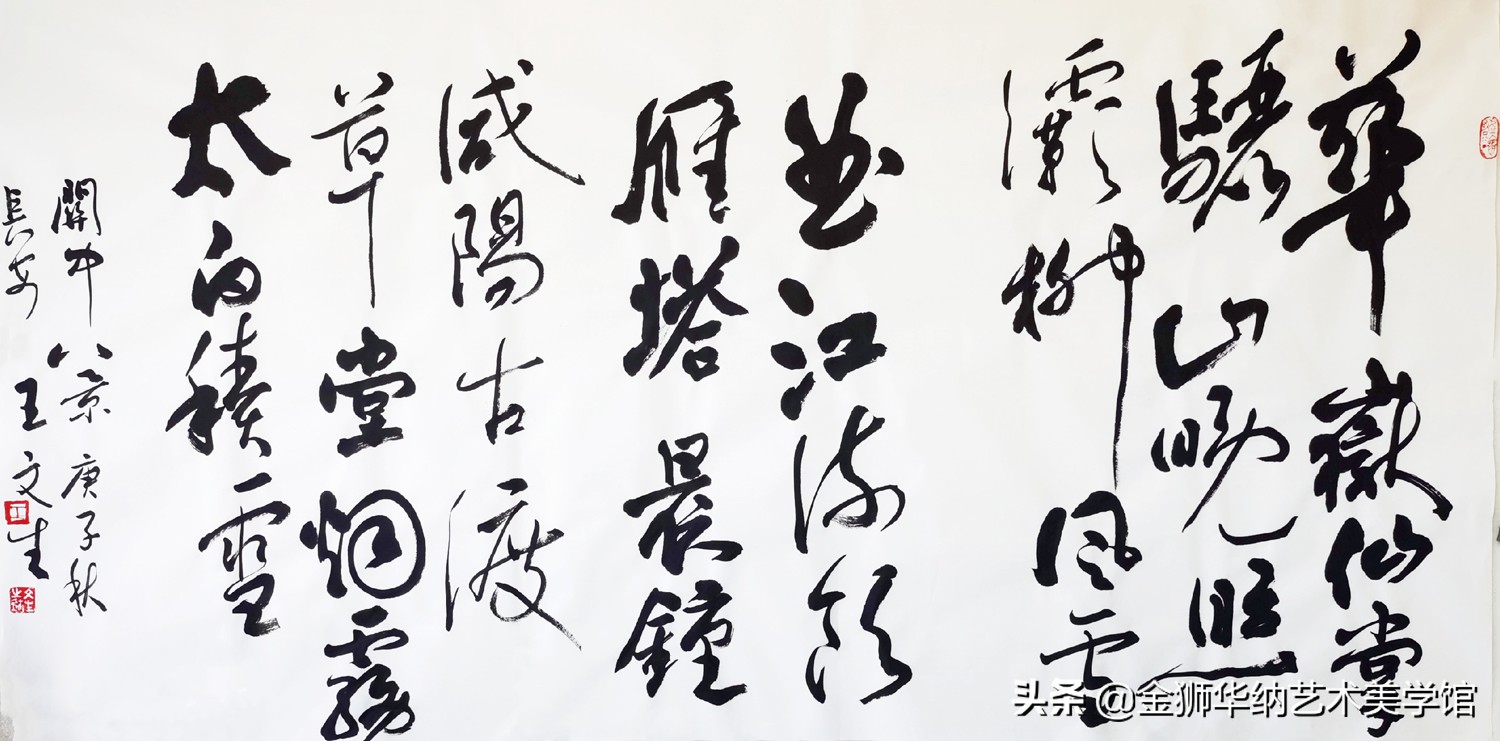 華嶽仙掌
驪山晚照
灞柳風雪
曲江流飲
雁塔晨鐘
咸陽古渡
草堂烟霧
太白積雪
關中八景庚子秋
長安王文生
头条 @金狮华纳艺术美学馆